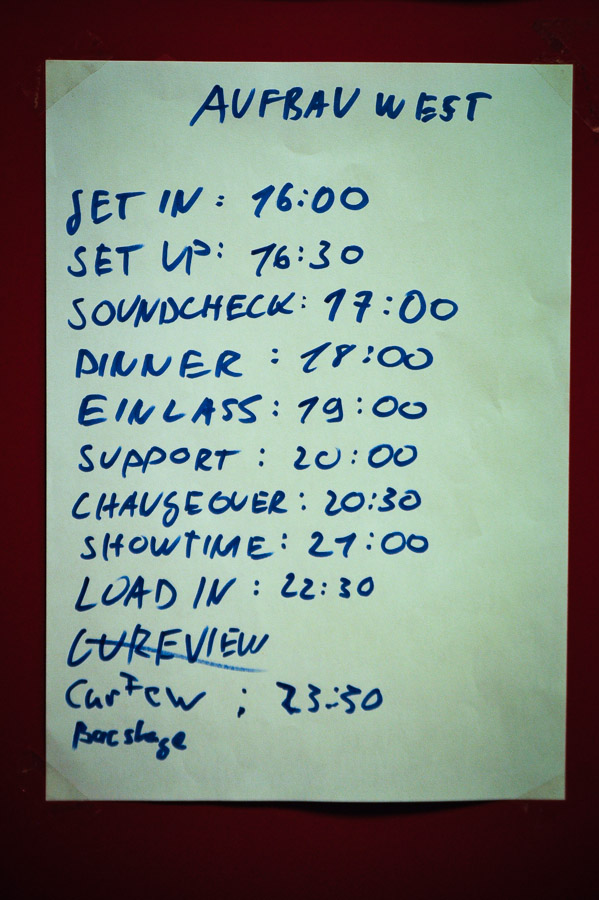 AUFBAU WEST
GET IN : 16:00
SET UP: 16:30
SOUNDCHECK: 17:00
DINNER : 18:00
EINLASS: 19:00
SUPPORT : 20:00
CHANGEOVER: 20:30
SHOWTIME: 21:00
LOAD IN : 22:30
CUREVIEW
Curfew : 23:30
Bacstage